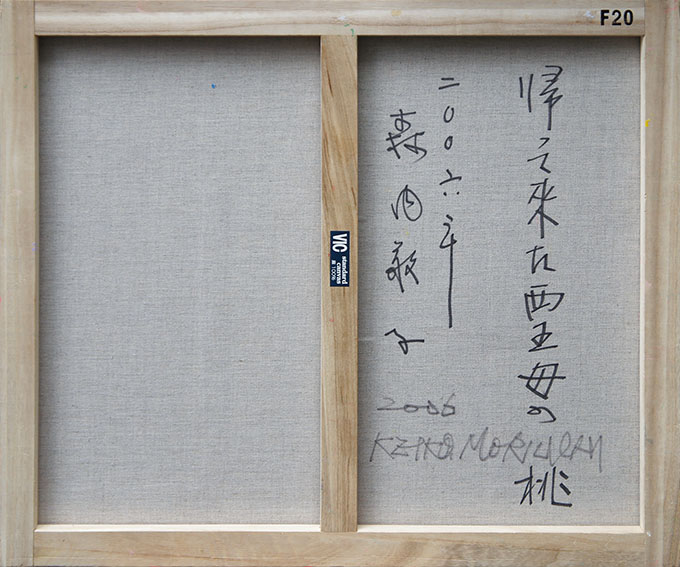 F20
帰って來た西王母の桃
二〇〇六年
森内敬子
2006
KEIKO MORIUCHI
VIC
standard
canvas
麻 100%